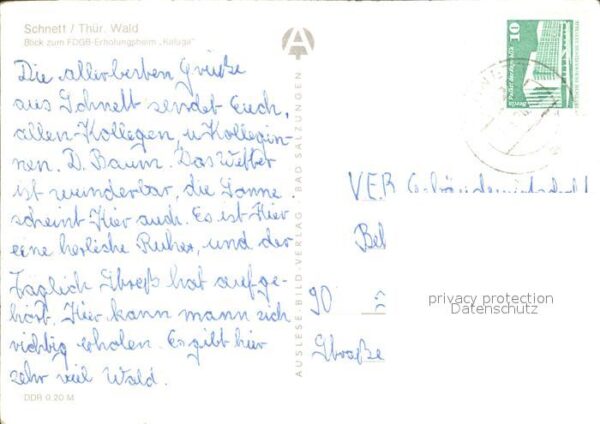 Schnett / Thür. Wald
Blick zum FDGB-Erholungsheim „Kaluga"
Die allerbesten Grüße
aus Schnett sendet Euch,
allen Kollegen, u Kollegin-
nen. D. Baum. Das Wetter
ist wunderbar, die Sonne
scheint Hier auch. Es ist Hier
eine herliche Ruher, und der
Täglich Streß hat aufge-
hört. Hier kann mann sich
richtig erholen. Es gibt hier
sehr viel Wald.
DDR 0,20 M
AUSLESE-BILD-VERLAG · BAD SALZUNGEN
10
Berlin Palast der Republik
VEB
Bel
90
Straße
privacy protection
Datenschutz